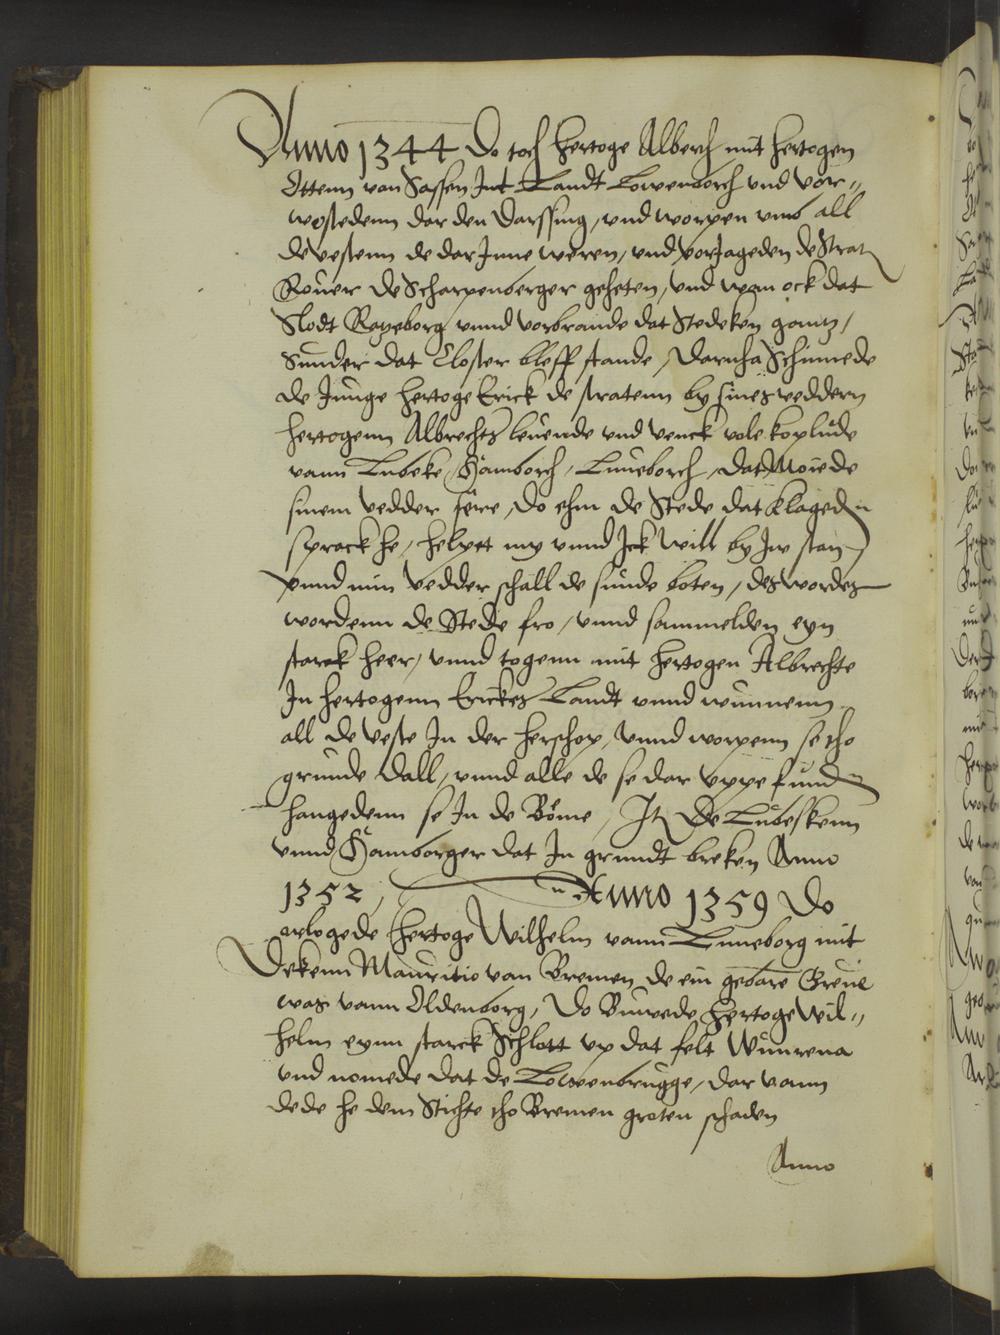 Anno 1344 Do toch Hertoge Alberch mit Hertogen
Ottenn van Sassen Int Landt Lowenborch vnd vor=
wostedenn dar den Darssing, vnd worpen vmb all
de vestenn de dar Inne weren, vnd voriageden de Strat
Rouer de Scharpenberger geheten, vnd wan ock dat
Slodt Razeborg vnnd vorbrande dat Stedeken gantz,
Sunder dat Closter bleff stande, Darnha Schinnede
de Junge Hertoge Erick de stratenn by sines veddern
Hertogenn Albrechts leuende vnd venck vele koplude
vann Lubeke, Hamborch, Luneborch, Dat Moiede
sinem vedder sere, Do ehm de Stede dat klageden
sprack he, helpet my vnnd Ick will by Jw stan,
vnnd min vedder schall de sunde boten, des wordes
wordenn de Stede fro, vnnd sammelden eyn
starck heer, vnnd togenn mit Hertogen Albrechte
In Hertogenn Erickes Landt vnnd wunnenn
all de veste In der Herschop, vnnd worpenn se tho
grunde dall, vnnd alle de se dar vppe funden
hangedenn se In de Böme, It De Lubeskenn
vnnd Hamborger dat In grundt breken Anno
1352, Anno 1359 Do
orlogede Hertoge Wilhelm vann Luneborg mit
Dekenn Mauritio van Bremen de ein gebare Greue
was vann Oldenborg, Do Buwede Hertoge Wil=
helm eynn starck Schlott vp dat felt
vnd nomede dat de Lowenbrugge, dar vann
dede he dem Stichte tho Bremen groten schaden
Anno